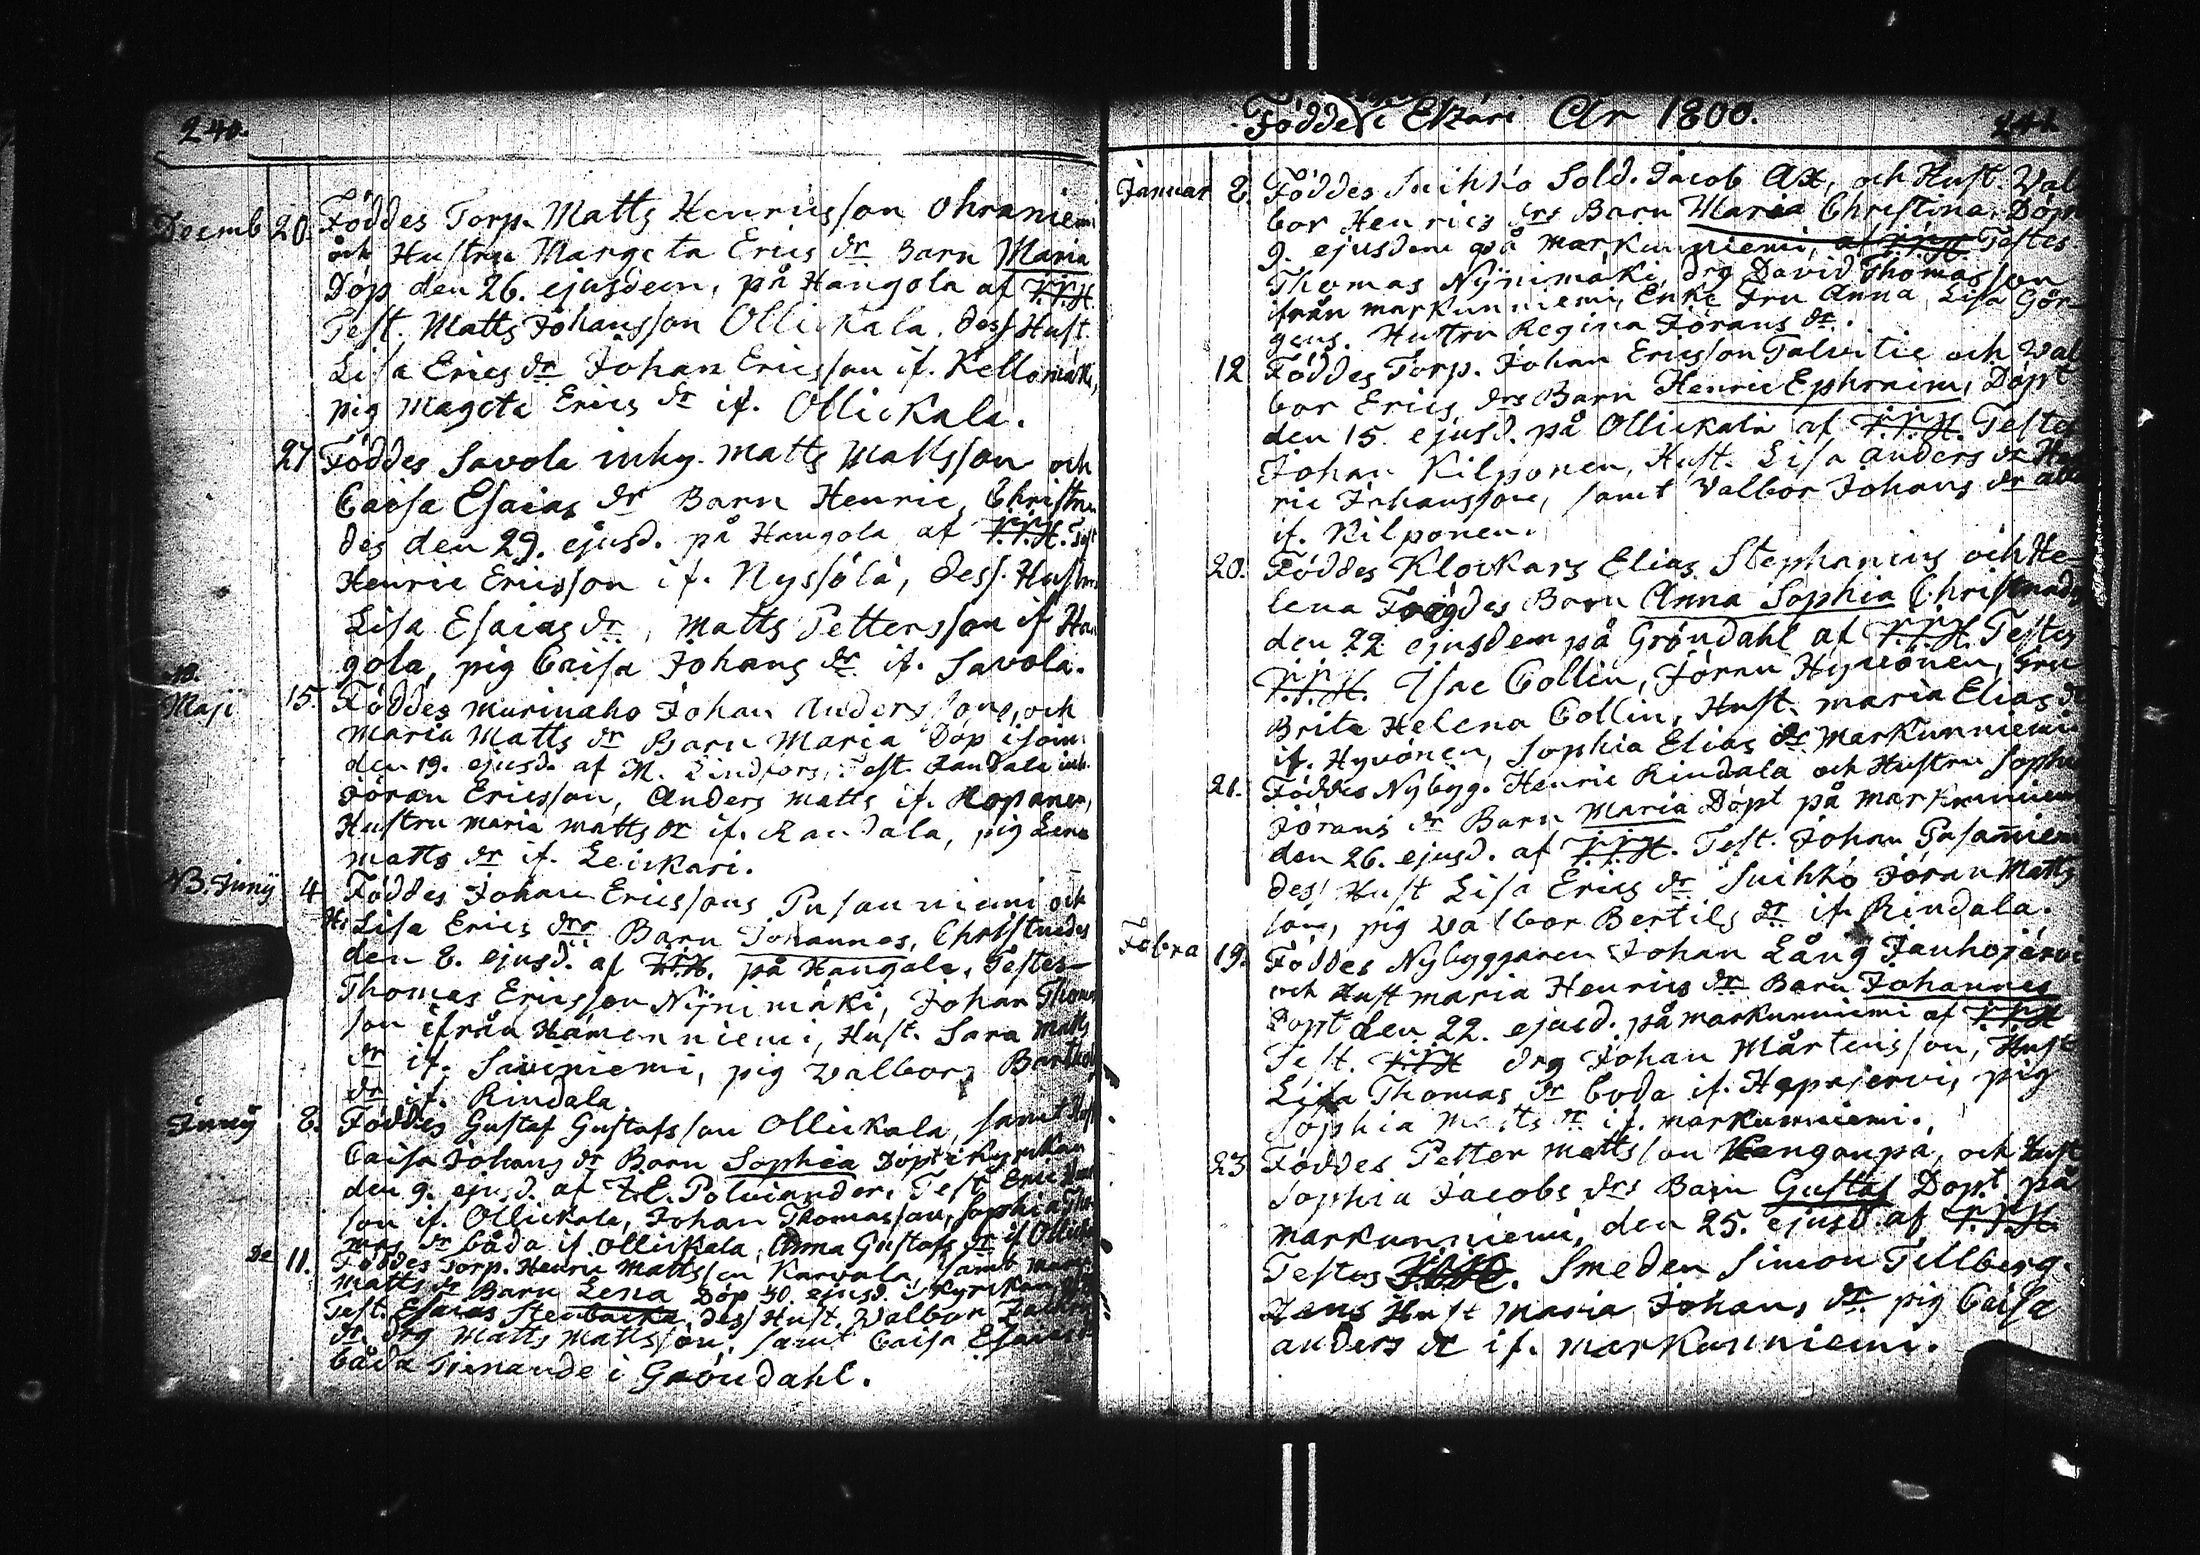 240.
Decemb 20. Föddes Torp. Matts Henricsson Ohraniemi
och Hustru Margeta Erics dr Barn Maria
Döp den 26. ejusdem, på Hangola af
Test. Matts Johansson Ollickala. dess Hust.
Lisa Erics dr Johan Ericsson if. Kellomäki,
pig Mageta Erics dr if. Ollickala.
27 Föddes Savola inhy. Matts Mattsson och
Caisa Esaias dr Barn Henric, Christna
des den 29. ejusd. på Hangola af
Henric Ericsson if. Nyssölä, dess. Hustru
Lisa Esaias dr, Matts Pettersson if Han
gola, pig Caisa Johans dr if. Savola.
Maji 15. Föddes Murinaho Johan Anderssons, och
Maria Matts dr Barn Maria Döp
den 19. ejusd. af M. Lindfors, Test. Randala
Jöran Ericsson, Anders Matts if. Kopanen,
Hustru Maria Matts dr if. Randala, pig Lena
Matts dr if. Leickari.
NB. Junij 4 Föddes Johan Ericssons Pusanniemi och
H. Lisa Erics drs Barn Johannes, Christnades
den 8. ejusd. af på Hangola, Testes
Thomas Ericsson Nÿnimäki, Johan Thomas
son ifrån Hämenniemi, Hust. Sara Matts
dr if. Saviniemi, pig Valborg
dr if. Rindala
Junij 8. Föddes Gustaf Gustafsson Ollickala, samt
Caisa Johans dr Barn Sophia Döpt i Kyrckan
den 9. ejusd. af Polviander. Test Eric
son if. Ollickala, Johan Thomasson, Sophia Tho
mas dr båda if Ollickala, Anna Gustafs dr if
De 11. Föddes Torp. Henric Mattsson Karvala, samt
Matts dr Barn Lena Döp ejusd. i Kyrckan
Test. Esaias Stenbacka, dess Hust. Valbor
dr drg Matts Mattsson, samt Caisa Esaias
båda tienande i Gröndahl.
Födde i Etzäri År 1800. 241
Januar 8. Föddes Suihko Sold. Jacob Ax, och Hust. Val
bor Henrics drs Barn Maria Christina, Döpt
9. ejusdem på Markunniemi, af Testes
Thomas Nÿnimäki, drg David Thomasson
ifrån Markunniemi, Enke Fru Anna Lisa Gör
gens. Hustru Regina Jörans dr.
12 Föddes Torp. Johan Ericsson Talvitie och Val
bor Erics drs Barn Henric Ephraim, Döpt
den 15 ejusd. på Ollickala af Testes
Johan Kilponen, Hust. Lisa Anders dr Hen
ric Johansson, samt Valbor Johans dr alla
if. Kilponen.
20. Föddes Klockars Elias Stephanius och He-
lena Barn Anna Sophia Christnades
den 22 ejusdem på Gröndahl af Testes
Isac Collin, Jöran Hyvönen, Fru
Brita Helena Collin, Hust. Maria Elias dr
if. Hyvönen, Sophia Elias dr Markunniemi
21. Föddes Nybyg. Henric Rindala och Hustru Sophia
Jörans dr Barn Maria Döpt på Markunniemi
den 26. ejusd. af Test. Johan Pusanniemi
dess Hust Lisa Erics dr Suihko Jöran Matts
son, pig Valbor Bertils dr if. Rindala.
Febra 19. Föddes Nybyggaren Johan Lång Jauhojärvi
och Hust Maria Henrics dr Barn Johannes
Döpt den 22. ejusd. på Markunniemi af
Test. drg Johan Mårtensson, Hust
Lisa Thomas dr båda if. Hapajervi, pig
Sophia Matts dr if. Markunniemi.
23 Föddes Petter Mattsson Kengänpä, och Hust
Sophia Jacobs drs Barn Gustaf Döpt. på
Markunniemi, den 25. ejusd. af
Testes Smeden Simon Tillberg.
dens Hust Maria Johans dr pig Caisa
Anders dr if. Markunniemi.